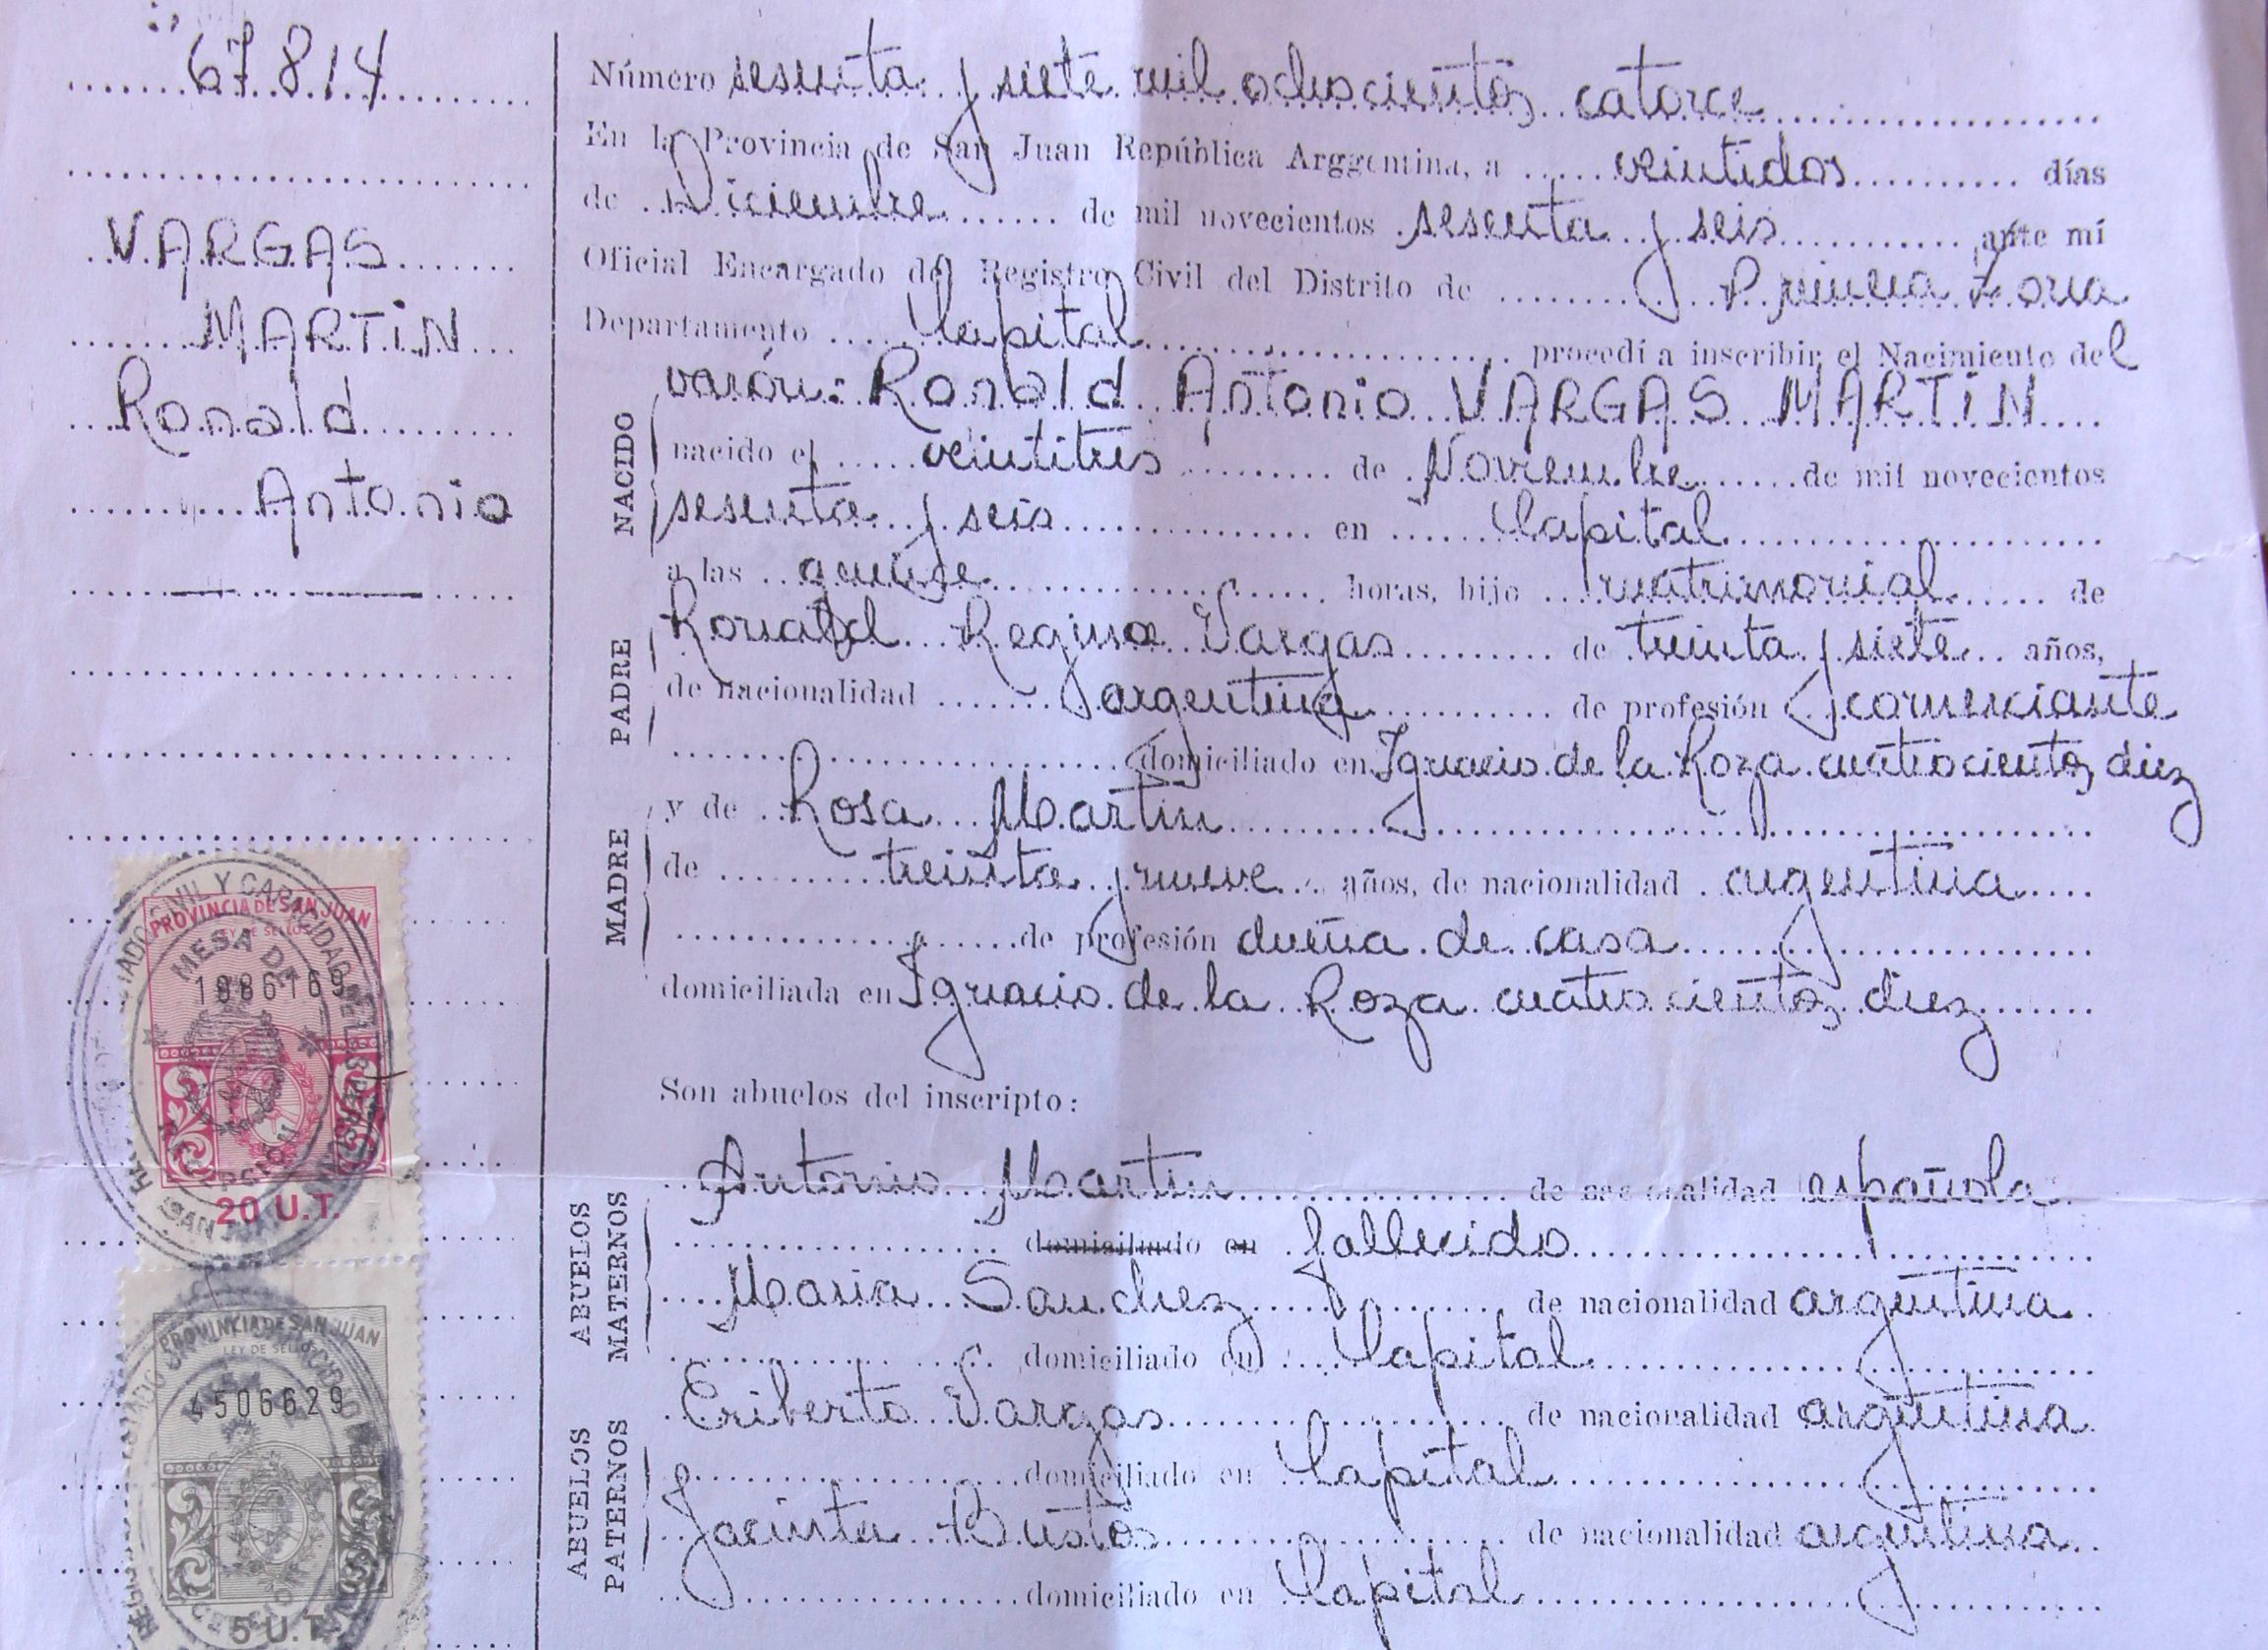 67.814
VARGAS
MARTIN
Ronald
Antonio
Número sesenta y siete mil ochocientos catorce
En la Provincia de San Juan República Arggentina, a veintidos días
de Diciembre de mil novecientos sesenta y seis ante mí
Oficial Encargado del Registro Civil del Distrito de Primera Zona
Departamento Capital procedí a inscribir el Nacimiento del
varón: Ronald Antonio VARGAS MARTIN
NACIDO
nacido el veintitres de Noviembre de mil novecientos
sesenta y seis en Capital
a las quinse horas, hijo matrimonial de
PADRE
Ronald Regino Vargas de treinta y siete años,
de nacionalidad argentina de profesión comerciante
domiciliado en Ignacio de la Roza cuatrocientos diez
MADRE
y de Rosa Martin
de treinta y nueve años, de nacionalidad argentina
de profesión dueña de casa
domiciliada en Ignacio de la Roza cuatrocientos diez
Son abuelos del inscripto:
ABUELOS MATERNOS
Antonio Martin de nacionalidad española
domiciliado en fallecido
Maria Sanchez de nacionalidad argentina
domiciliado en Capital
ABUELOS PATERNOS
Eriberto Vargas de nacionalidad argentina
domiciliado en Capital
Jacinta Bustos de nacionalidad argentina
domiciliado en Capital
PROVINCIA DE SAN JUAN
LEY DE SELLOS
MESA DE
1086169
SAN JUAN
20 U.T.
PROVINCIA DE SAN JUAN
LEY DE SELLOS
4506629
5 U.T.